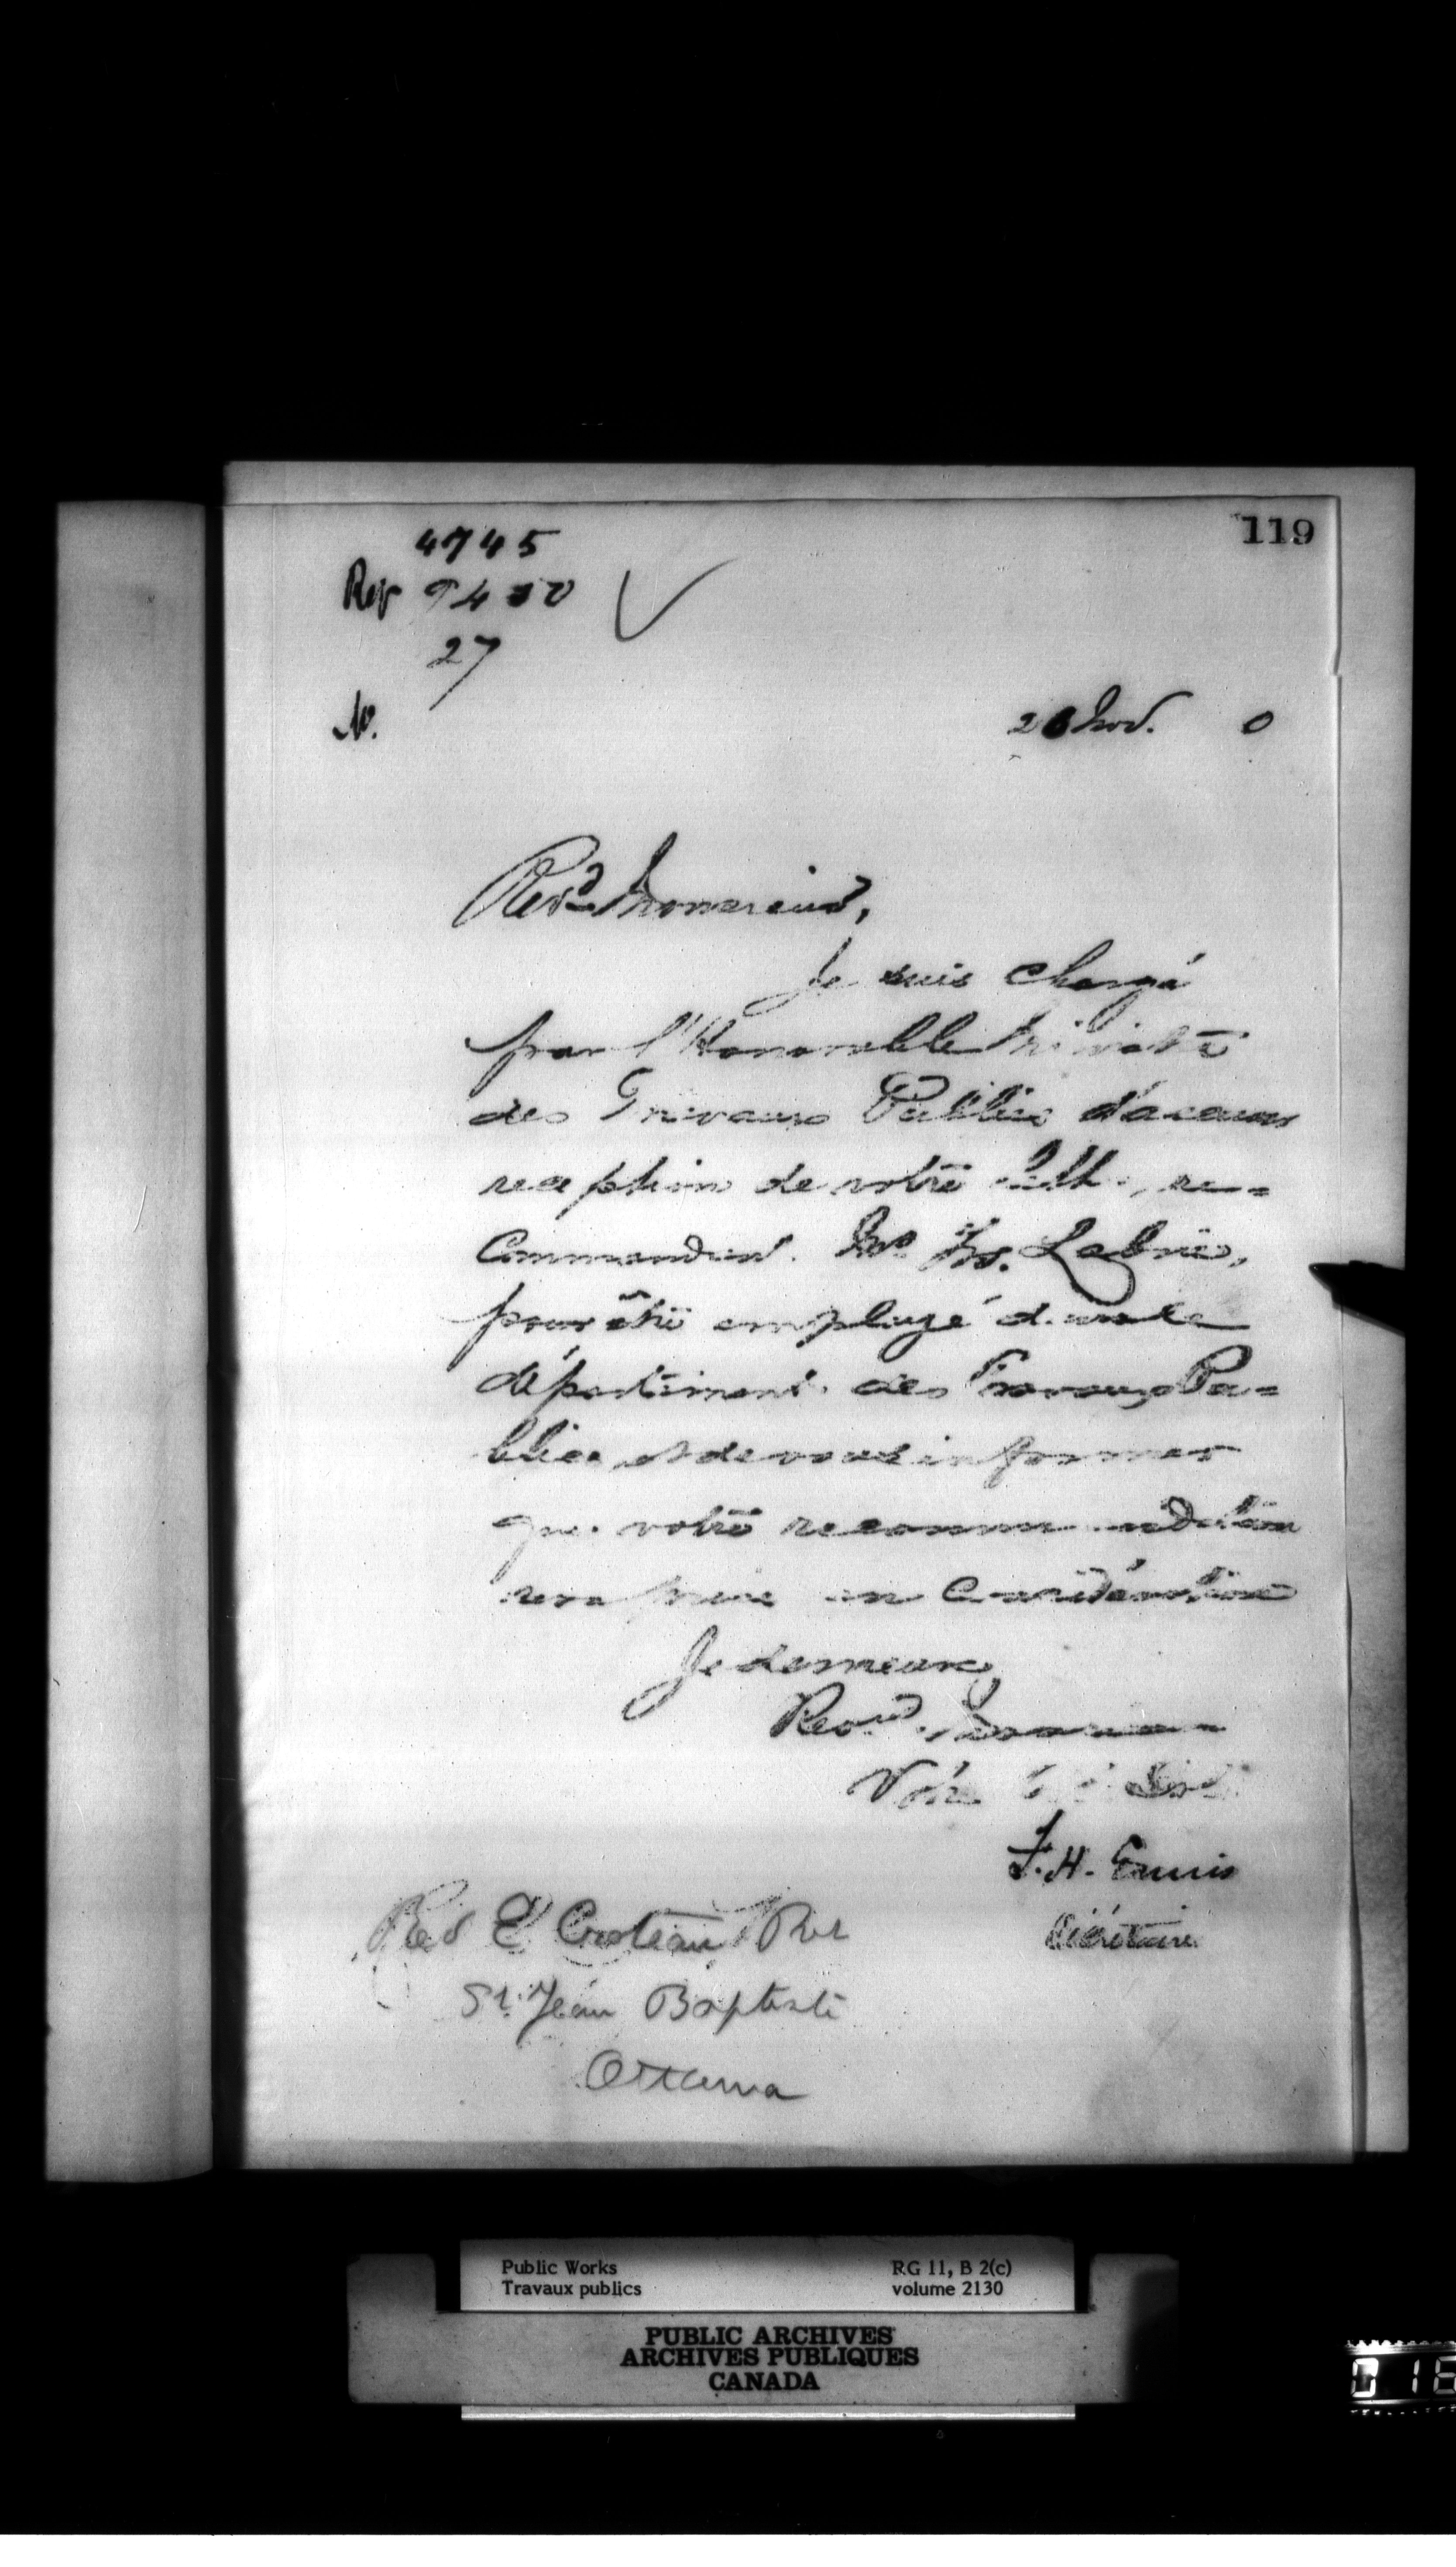 119
4745
Rep 9430
27
No.
26 Nov. 0
Revd Monsieur,
Je suis chargé
par l'Honorable Ministre
des Travaux Publics d'accuser
reception de votre re=
commandant Mr Labrie,
pour être employé dans le
département des Travaux Pu=
blics, et de vous informer
que votre recommandation
sera prise en Considération
Je demeure,
Revd Monsieur
Votre
F. H. Ennis
Secrétaire
Rev E Croteau Ptr
St. Jean Baptiste
Ottawa
Public Works
Travaux publics
RG 11, B 2(c)
volume 2130
PUBLIC ARCHIVES
ARCHIVES PUBLIQUES
CANADA